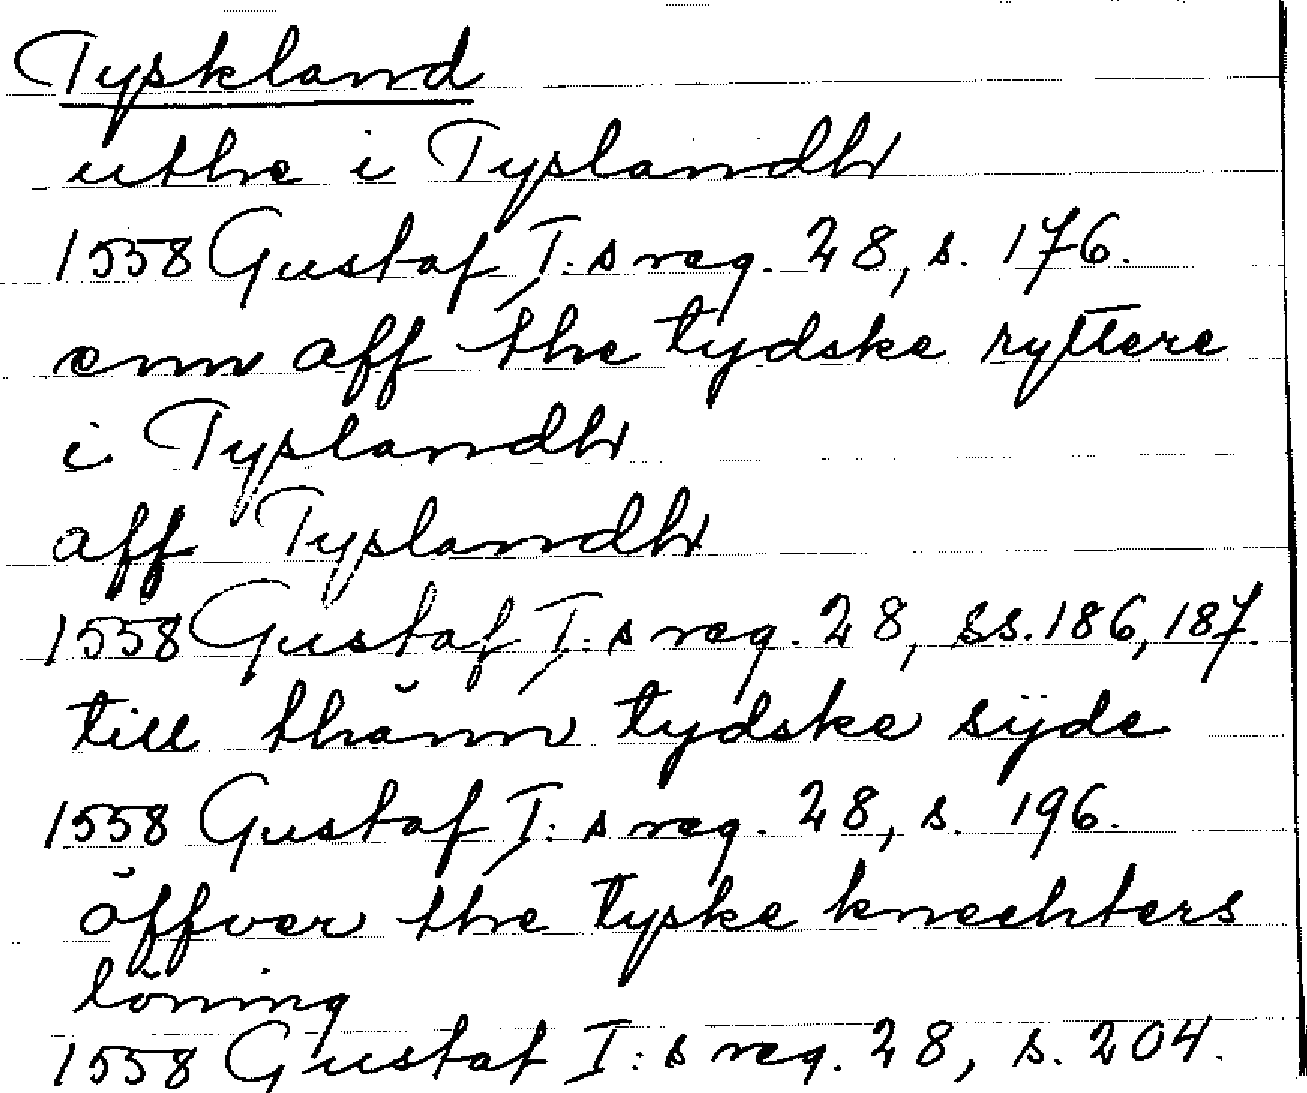 Tyskland
uthe i Tyslandh
1558 Gustaf I:s reg. 28, s. 176.
enn aff the tydske ryttere
i Tyslandh
aff Tyslandh
1558 Gustaf I:s reg. 28, ss. 186, 187.
till thänn tydske sÿde
1558 Gustaf I:s reg. 28, s. 196.
öffver the tyske knechters
löning
1558 Gustaf I:s reg. 28, s. 204.